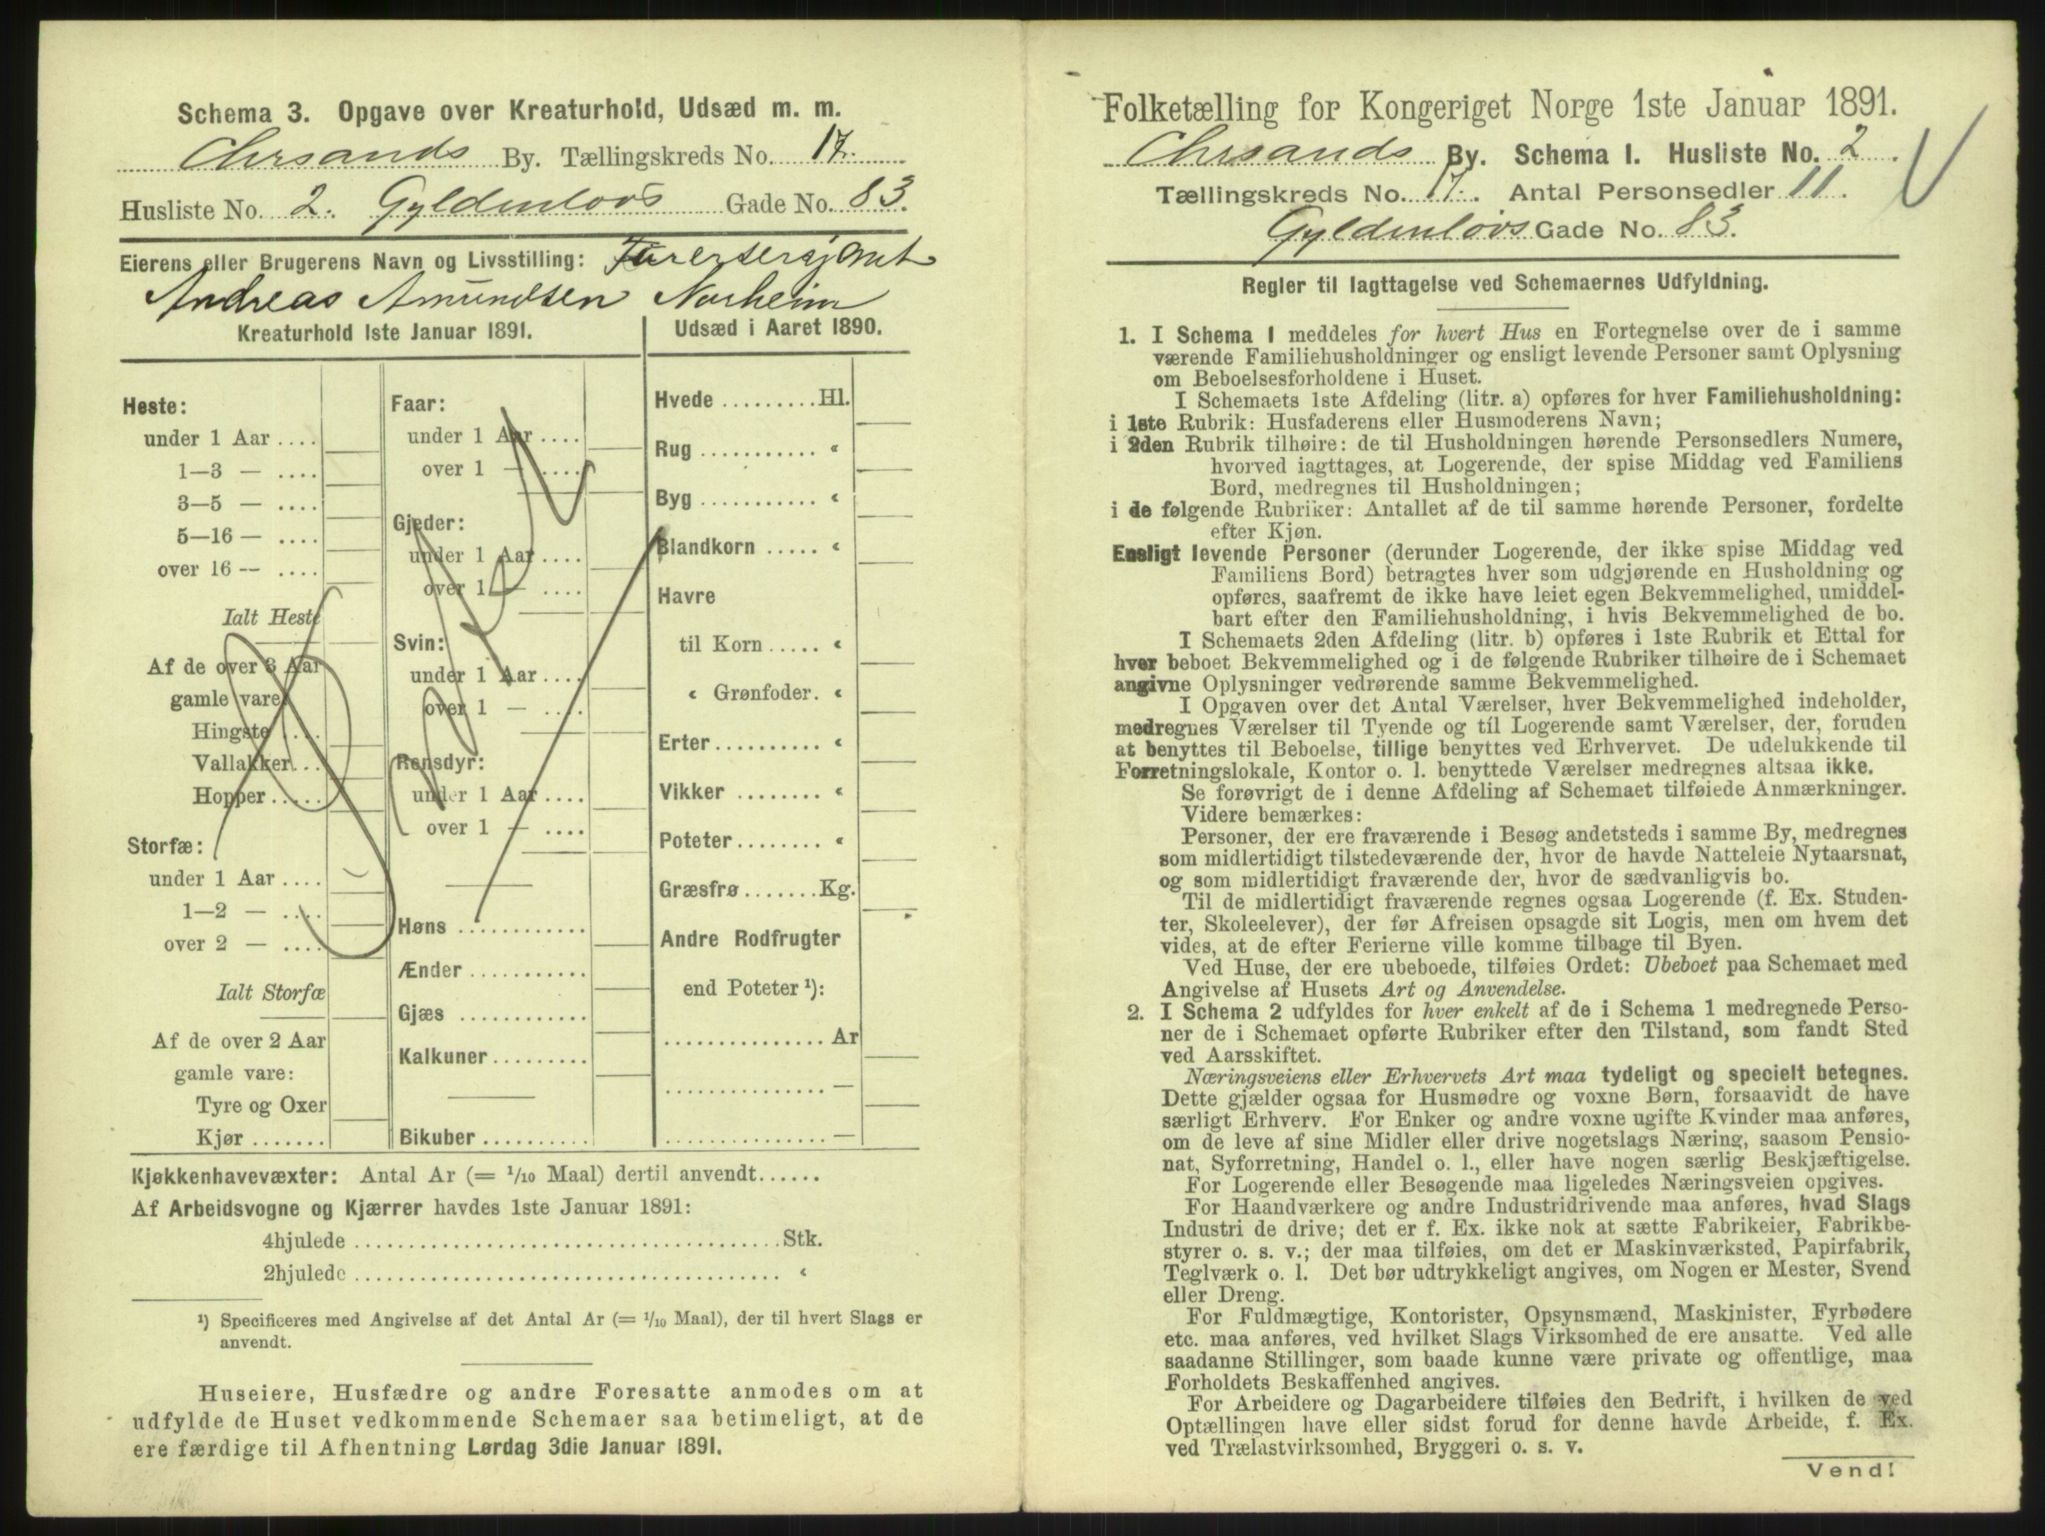 Schema 3. Opgave over Kreaturhold, Udsæd m. m.
Chrsands By. Tællingskreds No. 17.
Husliste No. 2. Gyldenløvs Gade No. 83.
Eierens eller Brugerens Navn og Livsstilling:
Andreas Amundsen Norheim
Kreaturhold 1ste Januar 1891.
Heste:
under 1 Aar ....
1—3 — ....
3—5 — ....
5—16 — ....
over 16 — ....
Ialt Heste
Af de over 3 Aar
gamle vare:
Hingste ....
Vallakker...
Hopper.....
Storfæ:
under 1 Aar ....
1—2 — ....
over 2 — ....
Ialt Storfæ
Af de over 2 Aar
gamle vare:
Tyre og Oxer
Kjør .......
Faar:
under 1 Aar ....
over 1 — ....
Gjeder:
under 1 Aar ....
over 1 — ....
Svin:
under 1 Aar ....
over 1 — ....
Rensdyr:
under 1 Aar ....
over 1 — ....
Høns ............
Ænder ...........
Gjæs ............
Kalkuner .........
Bikuber ..........
Udsæd i Aaret 1890.
Hvede ......... Hl.
Rug ........... «
Byg ........... «
Blandkorn ..... «
Havre
til Korn ..... «
« Grønfoder. «
Erter .......... «
Vikker ........ «
Poteter ........ «
Græsfrø ....... Kg.
Andre Rodfrugter
end Poteter ¹):
............... Ar
............... —
............... —
Kjøkkenhavevæxter: Antal Ar (= 1/10 Maal) dertil anvendt......
Af Arbeidsvogne og Kjærrer havdes 1ste Januar 1891:
4hjulede ........................................ Stk.
2hjulede ........................................ «
¹) Specificeres med Angivelse af det Antal Ar (= 1/10 Maal), der til hvert Slags er
anvendt.
Huseiere, Husfædre og andre Foresatte anmodes om at
udfylde de Huset vedkommende Schemaer saa betimeligt, at de
ere færdige til Afhentning Lørdag 3die Januar 1891.
Folketælling for Kongeriget Norge 1ste Januar 1891.
Chrsands By. Schema 1. Husliste No. 2.
Tællingskreds No. 17. Antal Personsedler 11.
Gyldenløvs Gade No. 83.
Regler til Iagttagelse ved Schemaernes Udfyldning.
1. I Schema 1 meddeles for hvert Hus en Fortegnelse over de i samme
værende Familiehusholdninger og ensligt levende Personer samt Oplysning
om Beboelsesforholdene i Huset.
I Schemaets 1ste Afdeling (litr. a) opføres for hver Familiehusholdning:
i 1ste Rubrik: Husfaderens eller Husmoderens Navn;
i 2den Rubrik tilhøire: de til Husholdningen hørende Personsedlers Numere,
hvorved iagttages, at Logerende, der spise Middag ved Familiens
Bord, medregnes til Husholdningen;
i de følgende Rubriker: Antallet af de til samme hørende Personer, fordelte
efter Kjøn.
Ensligt levende Personer (derunder Logerende, der ikke spise Middag ved
Familiens Bord) betragtes hver som udgjørende en Husholdning og
opføres, saafremt de ikke have leiet egen Bekvemmelighed, umiddel-
bart efter den Familiehusholdning, i hvis Bekvemmelighed de bo.
I Schemaets 2den Afdeling (litr. b) opføres i 1ste Rubrik et Ettal for
hver beboet Bekvemmelighed og i de følgende Rubriker tilhøire de i Schemaet
angivne Oplysninger vedrørende samme Bekvemmelighed.
I Opgaven over det Antal Værelser, hver Bekvemmelighed indeholder,
medregnes Værelser til Tyende og til Logerende samt Værelser, der, foruden
at benyttes til Beboelse, tillige benyttes ved Erhvervet. De udelukkende til
Forretningslokale, Kontor o. l. benyttede Værelser medregnes altsaa ikke.
Se forøvrigt de i denne Afdeling af Schemaet tilføiede Anmærkninger.
Videre bemærkes:
Personer, der ere fraværende i Besøg andetsteds i samme By, medregnes
som midlertidigt tilstedeværende der, hvor de havde Natteleie Nytaarsnat,
og som midlertidigt fraværende der, hvor de sædvanligvis bo.
Til de midlertidigt fraværende regnes ogsaa Logerende (f. Ex. Studen-
ter, Skoleelever), der før Afreisen opsagde sit Logis, men om hvem det
vides, at de efter Ferierne ville komme tilbage til Byen.
Ved Huse, der ere ubeboede, tilføies Ordet: Ubeboet paa Schemaet med
Angivelse af Husets Art og Anvendelse.
2. I Schema 2 udfyldes for hver enkelt af de i Schema 1 medregnede Perso-
ner de i Schemaet opførte Rubriker efter den Tilstand, som fandt Sted
ved Aarsskiftet.
Næringsveiens eller Erhvervets Art maa tydeligt og specielt betegnes.
Dette gjælder ogsaa for Husmødre og voxne Børn, forsaavidt de have
særligt Erhverv. For Enker og andre voxne ugifte Kvinder maa anføres,
om de leve af sine Midler eller drive nogetslags Næring, saasom Pensio-
nat, Syforretning, Handel o. l., eller have nogen særlig Beskjæftigelse.
For Logerende eller Besøgende maa ligeledes Næringsveien opgives.
For Haandværkere og andre Industridrivende maa anføres, hvad Slags
Industri de drive; det er f. Ex. ikke nok at sætte Fabrikeier, Fabrikbe-
styrer o. s. v.; der maa tilføies, om det er Maskinværksted, Papirfabrik,
Teglværk o. l. Det bør udtrykkeligt angives, om Nogen er Mester, Svend
eller Dreng.
For Fuldmægtige, Kontorister, Opsynsmænd, Maskinister, Fyrbødere
etc. maa anføres, ved hvilket Slags Virksomhed de ere ansatte. Ved alle
saadanne Stillinger, som baade kunne være private og offentlige, maa
Forholdets Beskaffenhed angives.
For Arbeidere og Dagarbeidere tilføies den Bedrift, i hvilken de ved
Optællingen have eller sidst forud for denne havde Arbeide, f. Ex.
ved Trælastvirksomhed, Bryggeri o. s. v.
Vend!